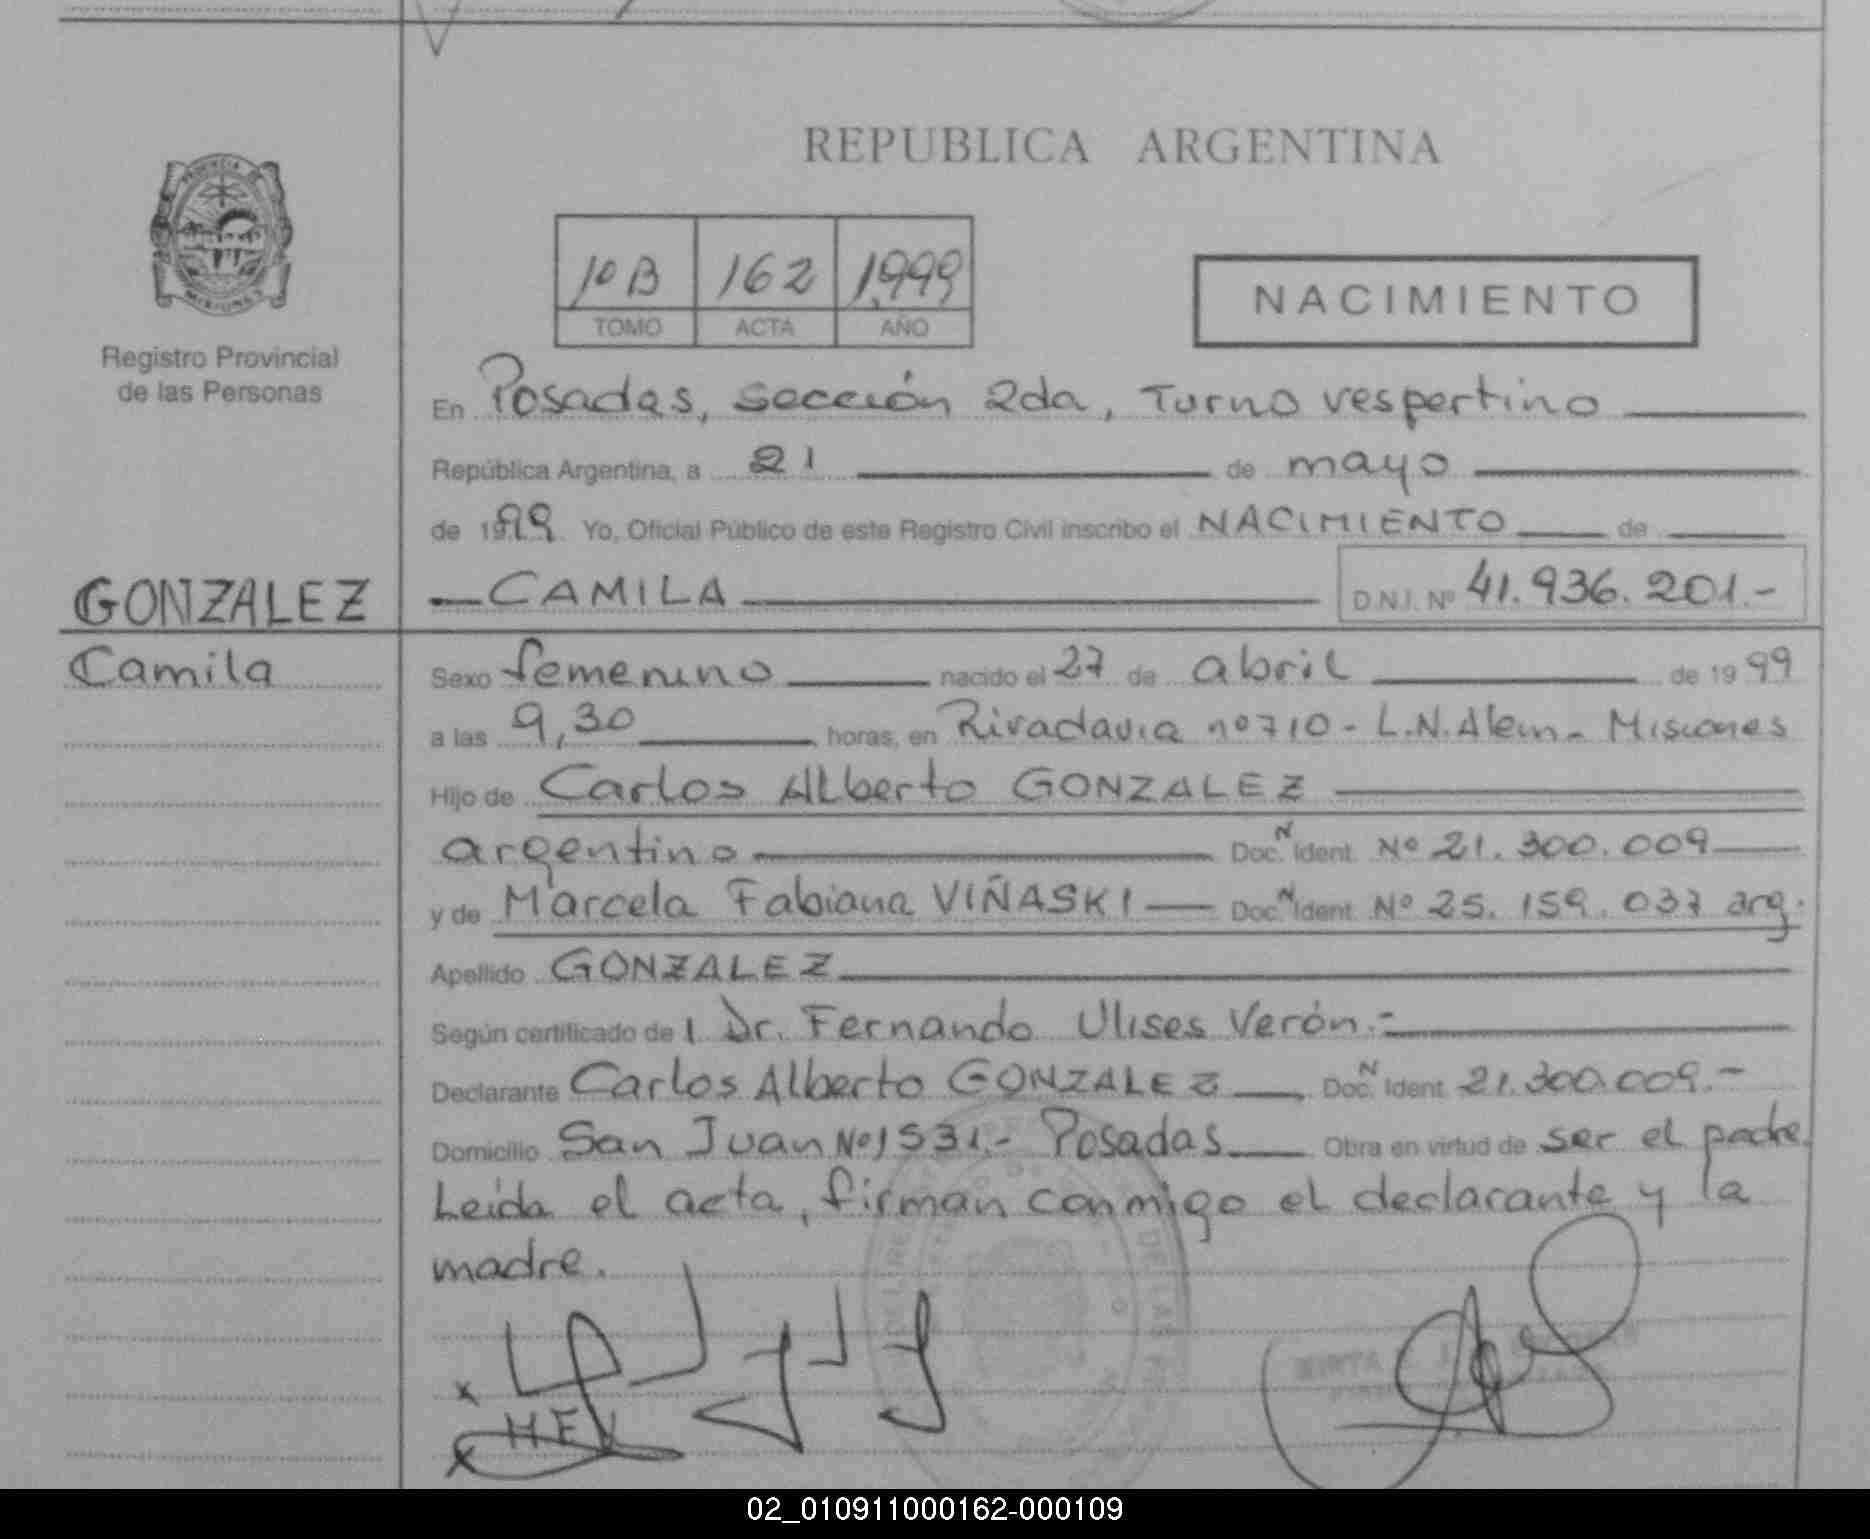 REPUBLICA ARGENTINA
PROVINCIA DE
MISIONES
Registro Provincial
de las Personas
1º B 162 1.999
TOMO ACTA AÑO
NACIMIENTO
En Posadas, sección 2da, Turno vespertino
República Argentina, a 21 de mayo
de 1999 Yo, Oficial Público de este Registro Civil inscribo el NACIMIENTO de
GONZALEZ
CAMILA D.N.I. Nº 41.936.201.-
Camila
Sexo femenino nacido el 27 de abril de 1999
a las 9,30 horas, en Rivadavia nº 710 - L.N. Alem - Misiones
Hijo de Carlos Alberto GONZALEZ
argentino Doc. N Ident. Nº 21.300.009
y de Marcela Fabiana VIÑASKI Doc. N Ident. Nº 25.159.037 arg.
Apellido GONZALEZ
Según certificado de l Dr. Fernando Ulises Verón.-
Declarante Carlos Alberto GONZALEZ Doc. N Ident. 21.300.009.-
Domicilio San Juan Nº 1531.- Posadas Obra en virtud de ser el padre.
Leída el acta, firman conmigo el declarante y la
madre.
DE LAS
MIRTA
02_010911000162-000109